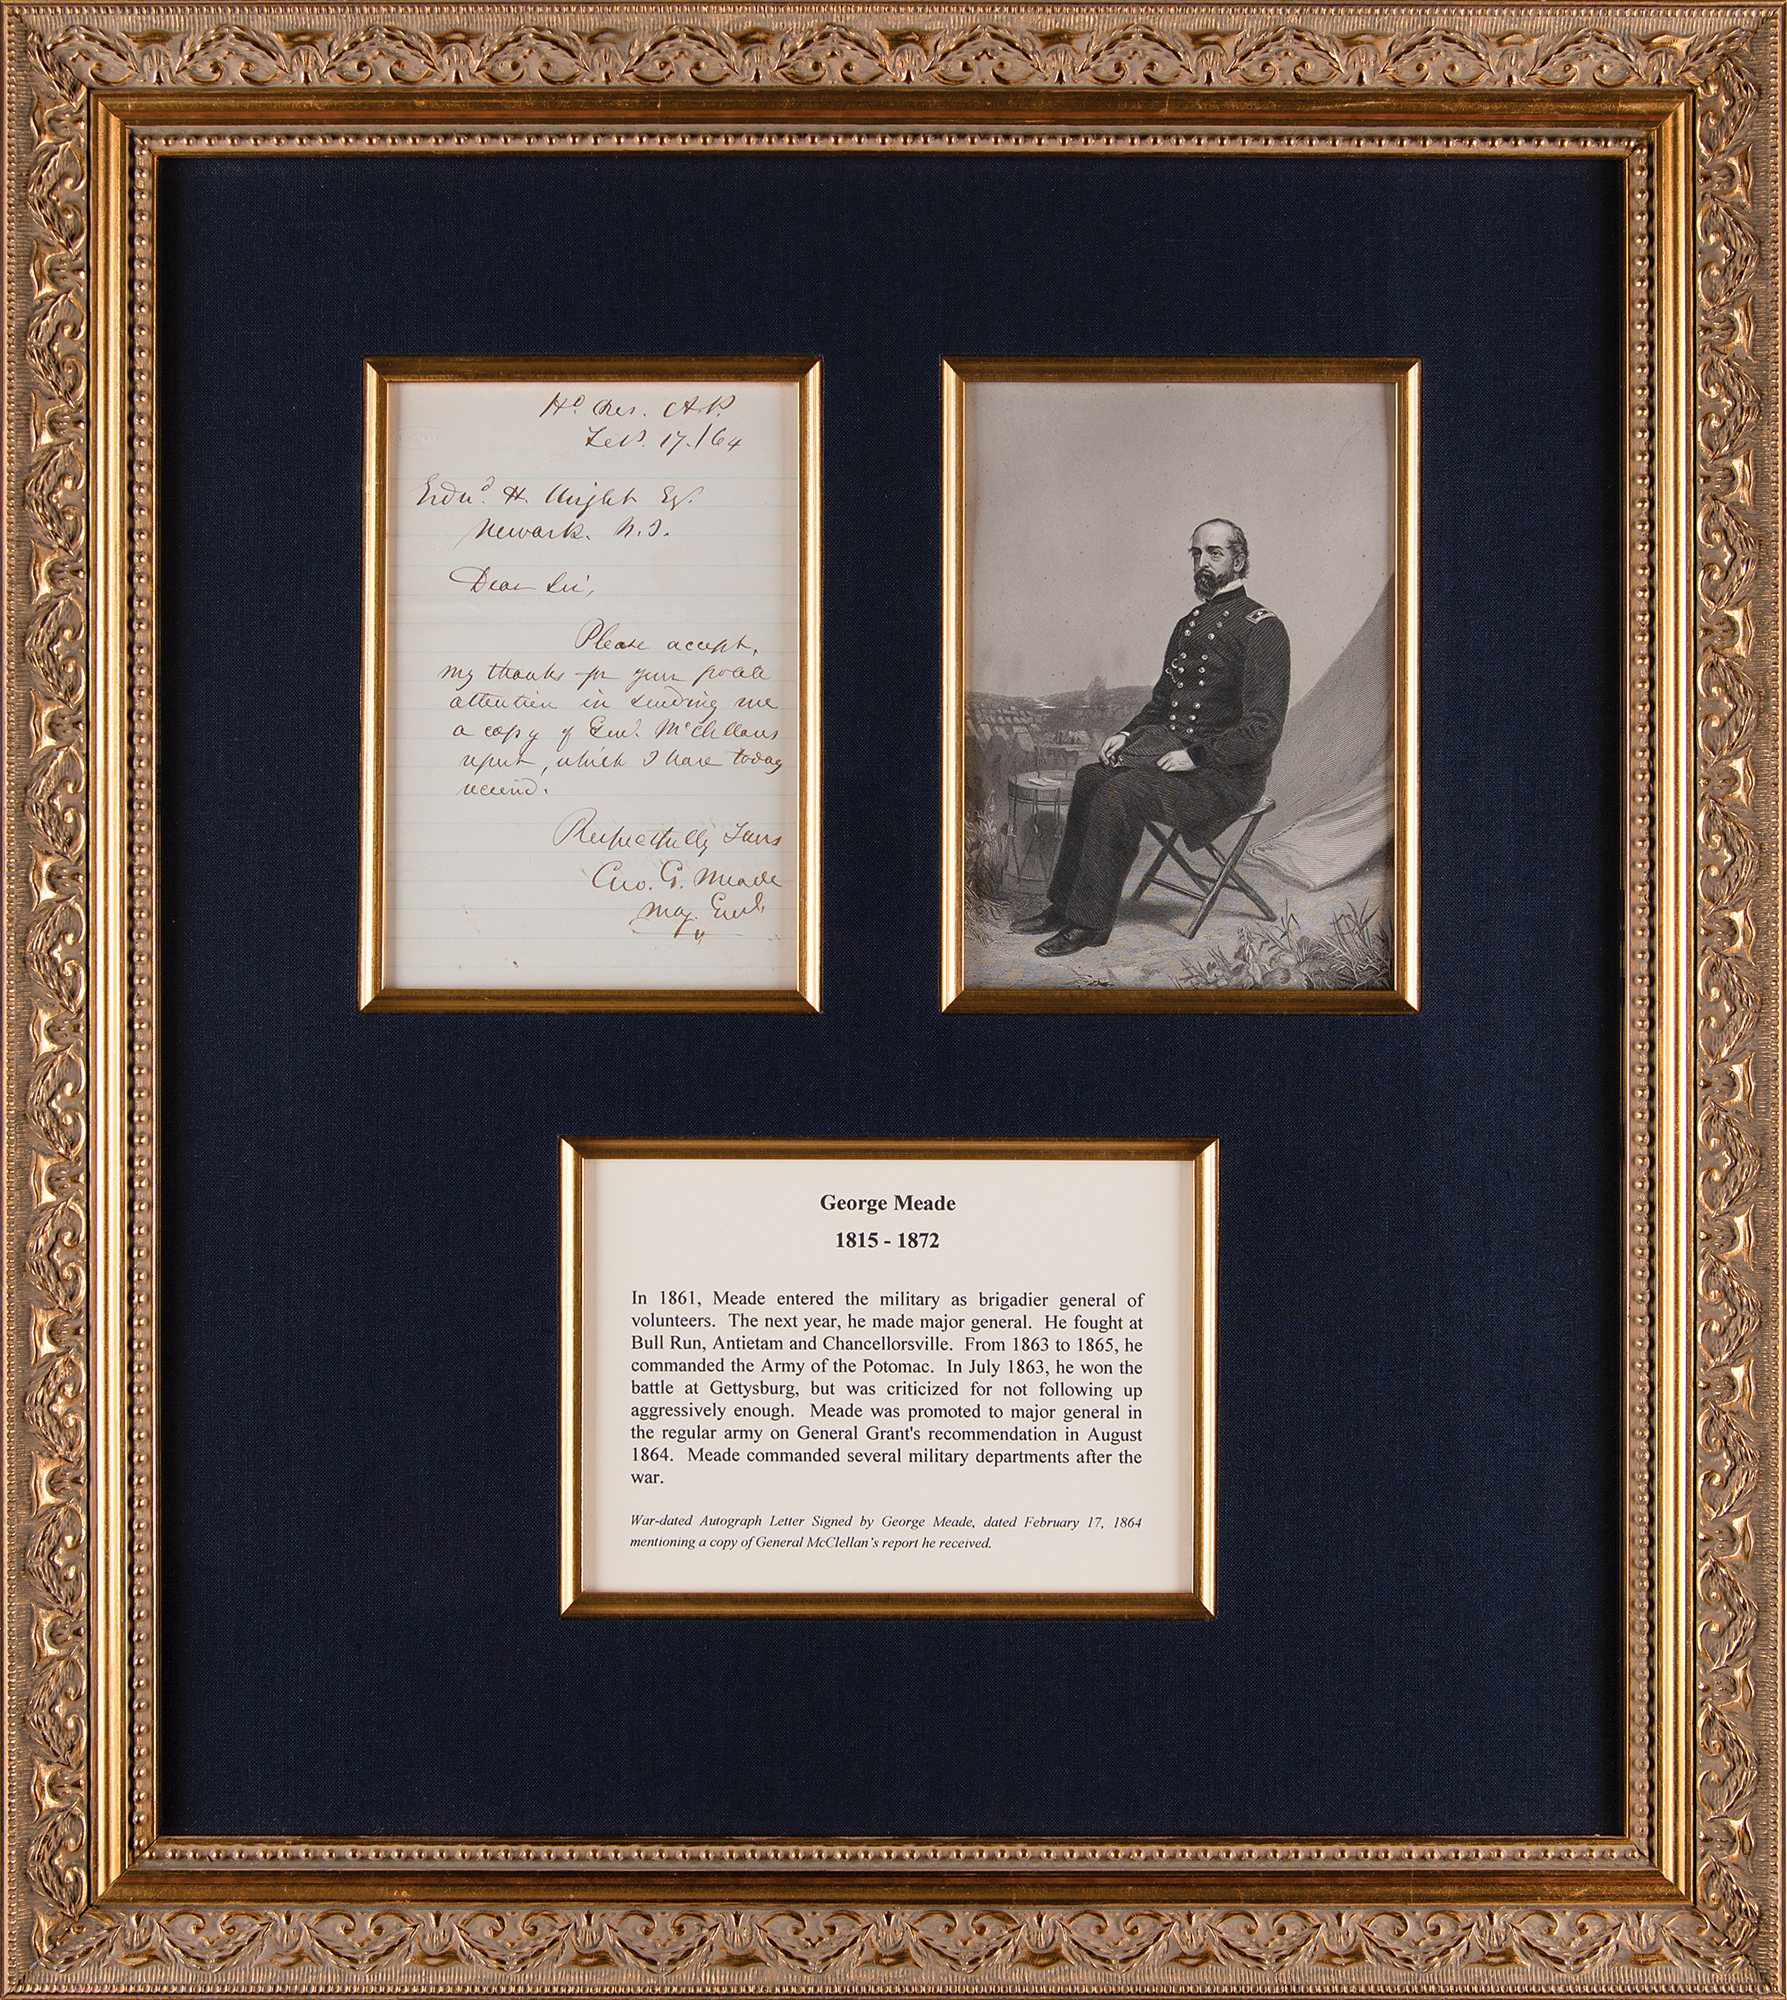 Hd Qrs. A.P.
Feb. 17. /64
Edwd. H. Wright Esq.
Newark. N.J.
Dear Sir,
Please accept,
my thanks for your polite
attention in sending me
a copy of Genl. McClellans
report, which I have today
received.
Respectfully Yours
Geo. G. Meade
Maj. Genl.
George Meade
1815 - 1872
In 1861, Meade entered the military as brigadier general of
volunteers. The next year, he made major general. He fought at
Bull Run, Antietam and Chancellorsville. From 1863 to 1865, he
commanded the Army of the Potomac. In July 1863, he won the
battle at Gettysburg, but was criticized for not following up
aggressively enough. Meade was promoted to major general in
the regular army on General Grant's recommendation in August
1864. Meade commanded several military departments after the
war.
War-dated Autograph Letter Signed by George Meade, dated February 17, 1864
mentioning a copy of General McClellan's report he received.